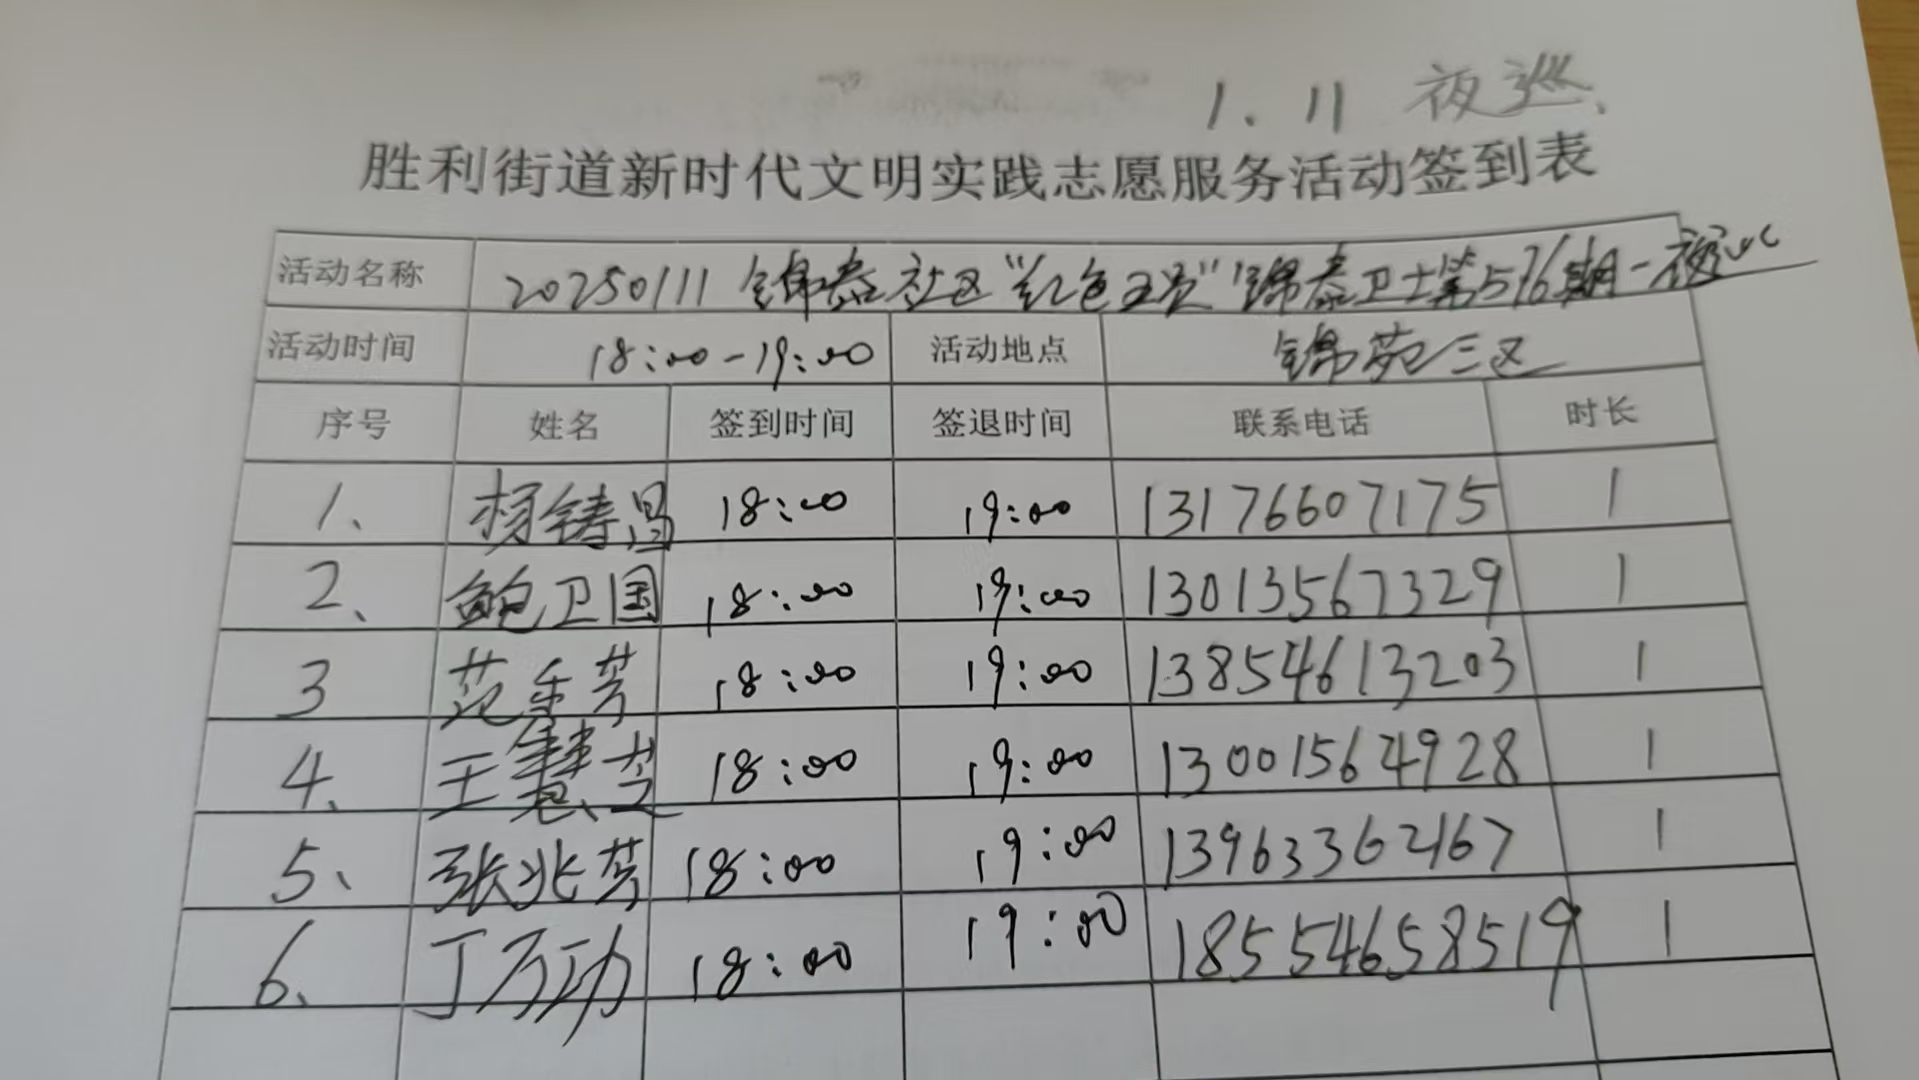 1.11 夜巡.
胜利街道新时代文明实践志愿服务活动签到表
活动名称 20250111 锦泰社区"红色卫士"锦泰卫士第576期-夜巡
活动时间 18:00-19:00 活动地点 锦苑三区
序号 姓名 签到时间 签退时间 联系电话 时长
1、 杨铸昌 18:00 19:00 13176607175 1
2、 鲍卫国 18:00 19:00 13013567329 1
3 范乐芳 18:00 19:00 13854613203 1
4、 王慧芝 18:00 19:00 13001564928 1
5、 张兆芳 18:00 19:00 13963362167 1
6、 丁万功 18:00 19:00 18554658519 1